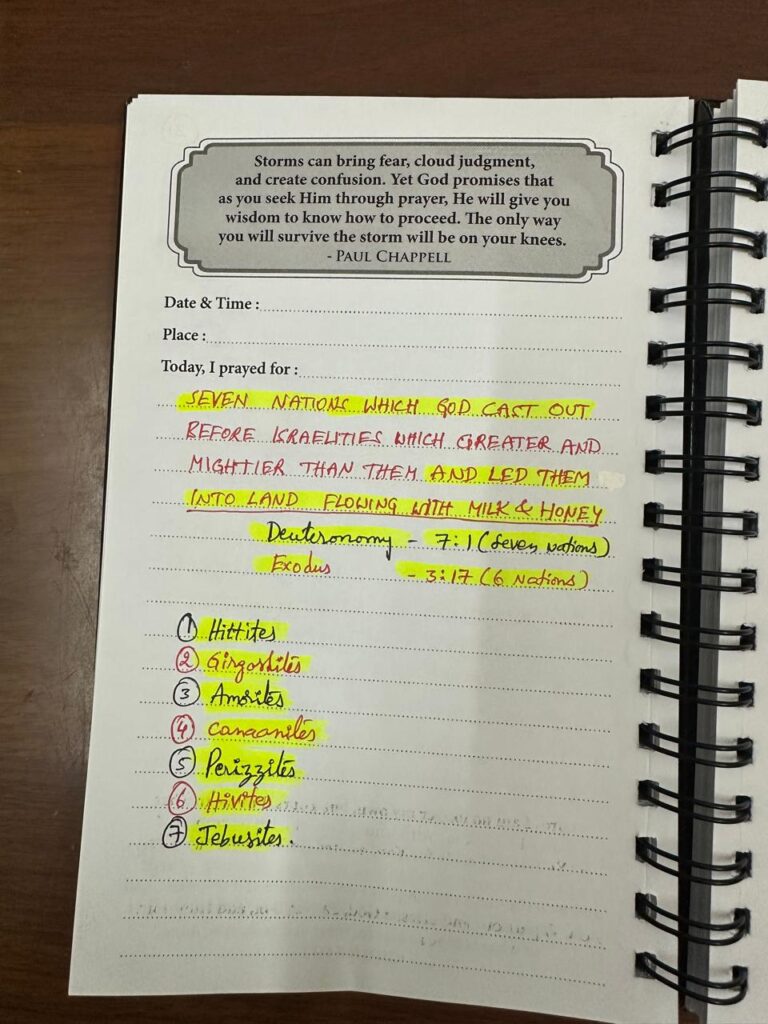 Storms can bring fear, cloud judgment,
and create confusion. Yet God promises that
as you seek Him through prayer, He will give you
wisdom to know how to proceed. The only way
you will survive the storm will be on your knees.
- PAUL CHAPPELL
Date & Time :
Place :
Today, I prayed for :
SEVEN NATIONS WHICH GOD CAST OUT
BEFORE ISRAELITIES WHICH GREATER AND
MIGHTIER THAN THEM AND LED THEM
INTO LAND FLOWING WITH MILK & HONEY
Deuteronomy - 7:1 (Seven Nations)
Exodus - 3:17 (6 Nations)
1 Hittites
2 Girgashites
3 Amorites
4 Canaanites
5 Perizzites
6 Hivites
7 Jebusites.